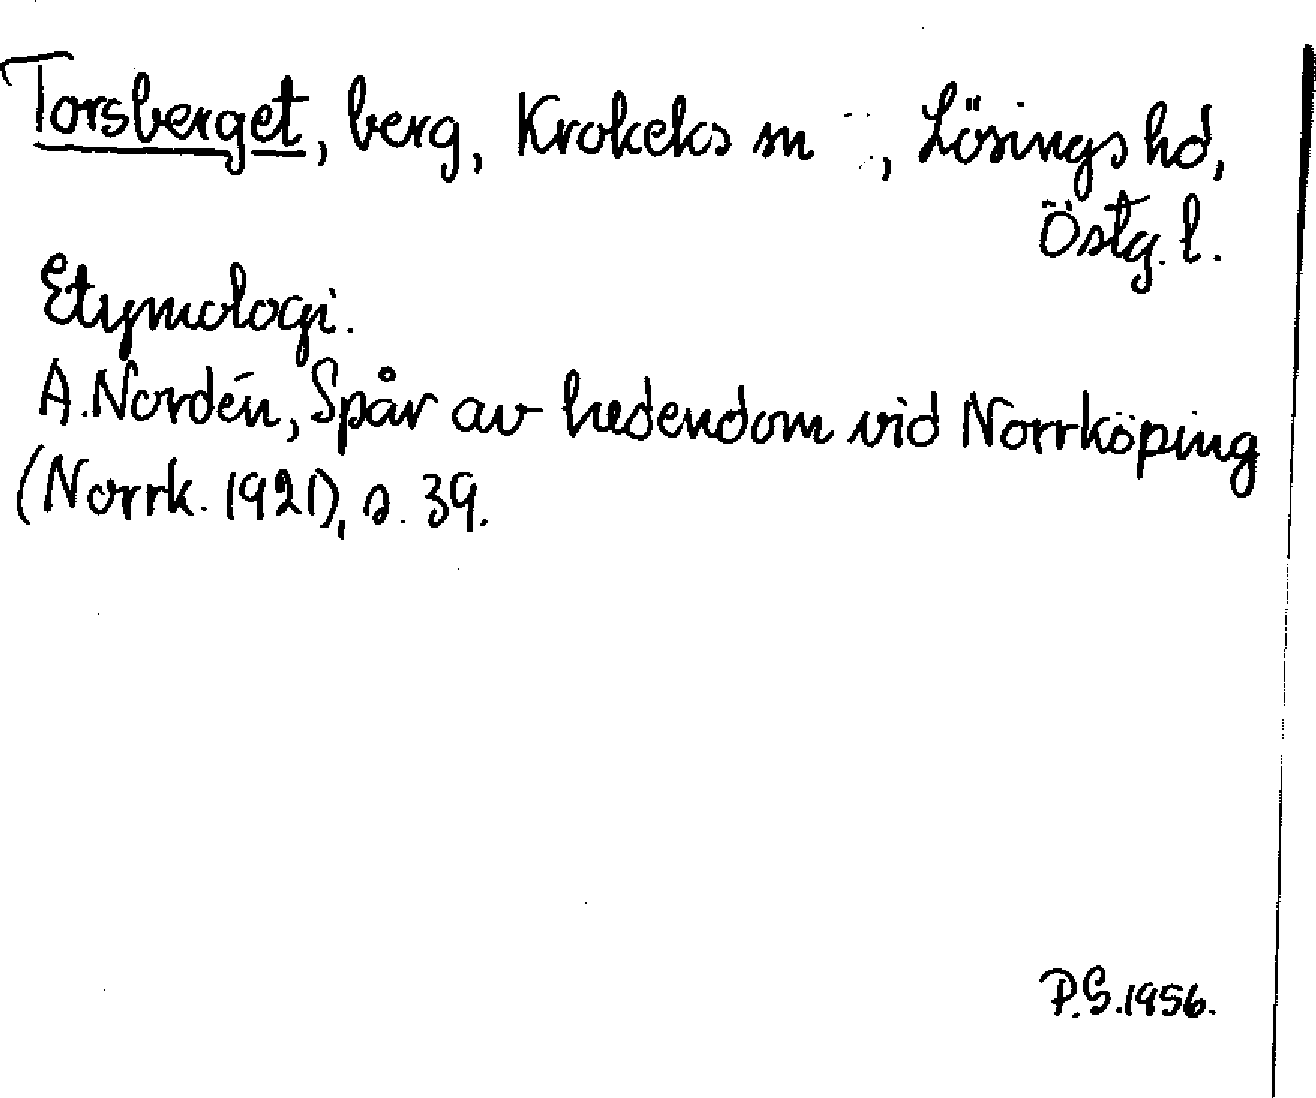 Torsberget, berg, Krokeks sn, Lösings hd,
Östg. l.
Etymologi.
A. Nordén, Spår av hedendom vid Norrköping
(Norrk. 1921), s. 39.
P.S. 1956.